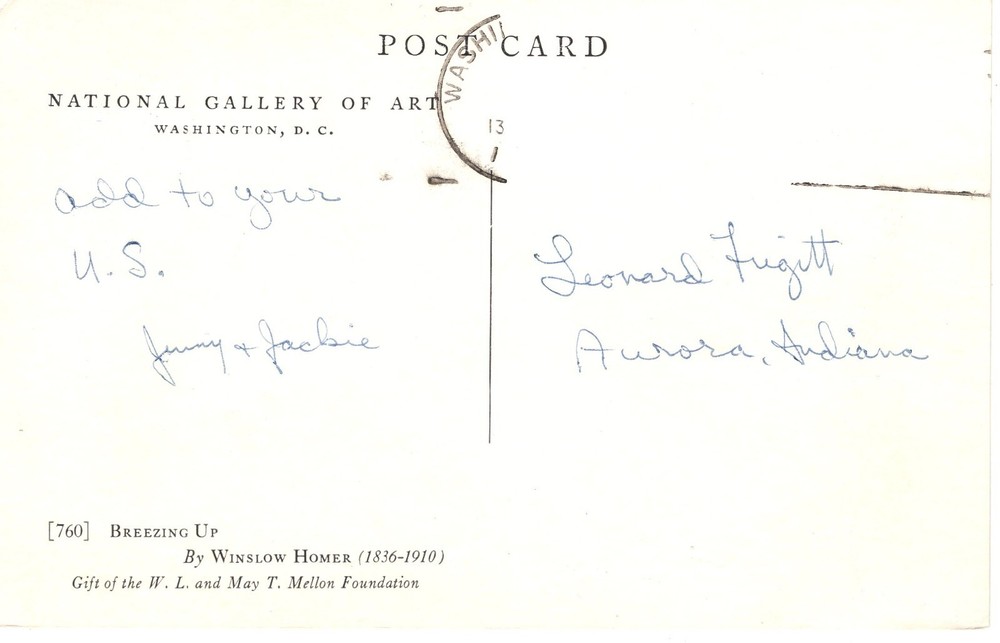 POST CARD
NATIONAL GALLERY OF ART
WASHINGTON, D. C.
WASHI
13
add to your
U. S.
Jenny & Jackie
Leonard Frigitt
Aurora, Indiana
[760] BREEZING UP
By WINSLOW HOMER (1836-1910)
Gift of the W. L. and May T. Mellon Foundation